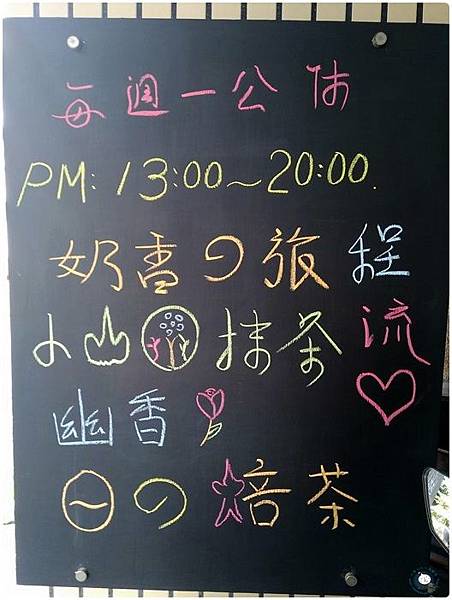 每週一公休
PM: 13:00~20:00.
奶香の旅程
小山園抹茶 流
幽香
日の焙茶